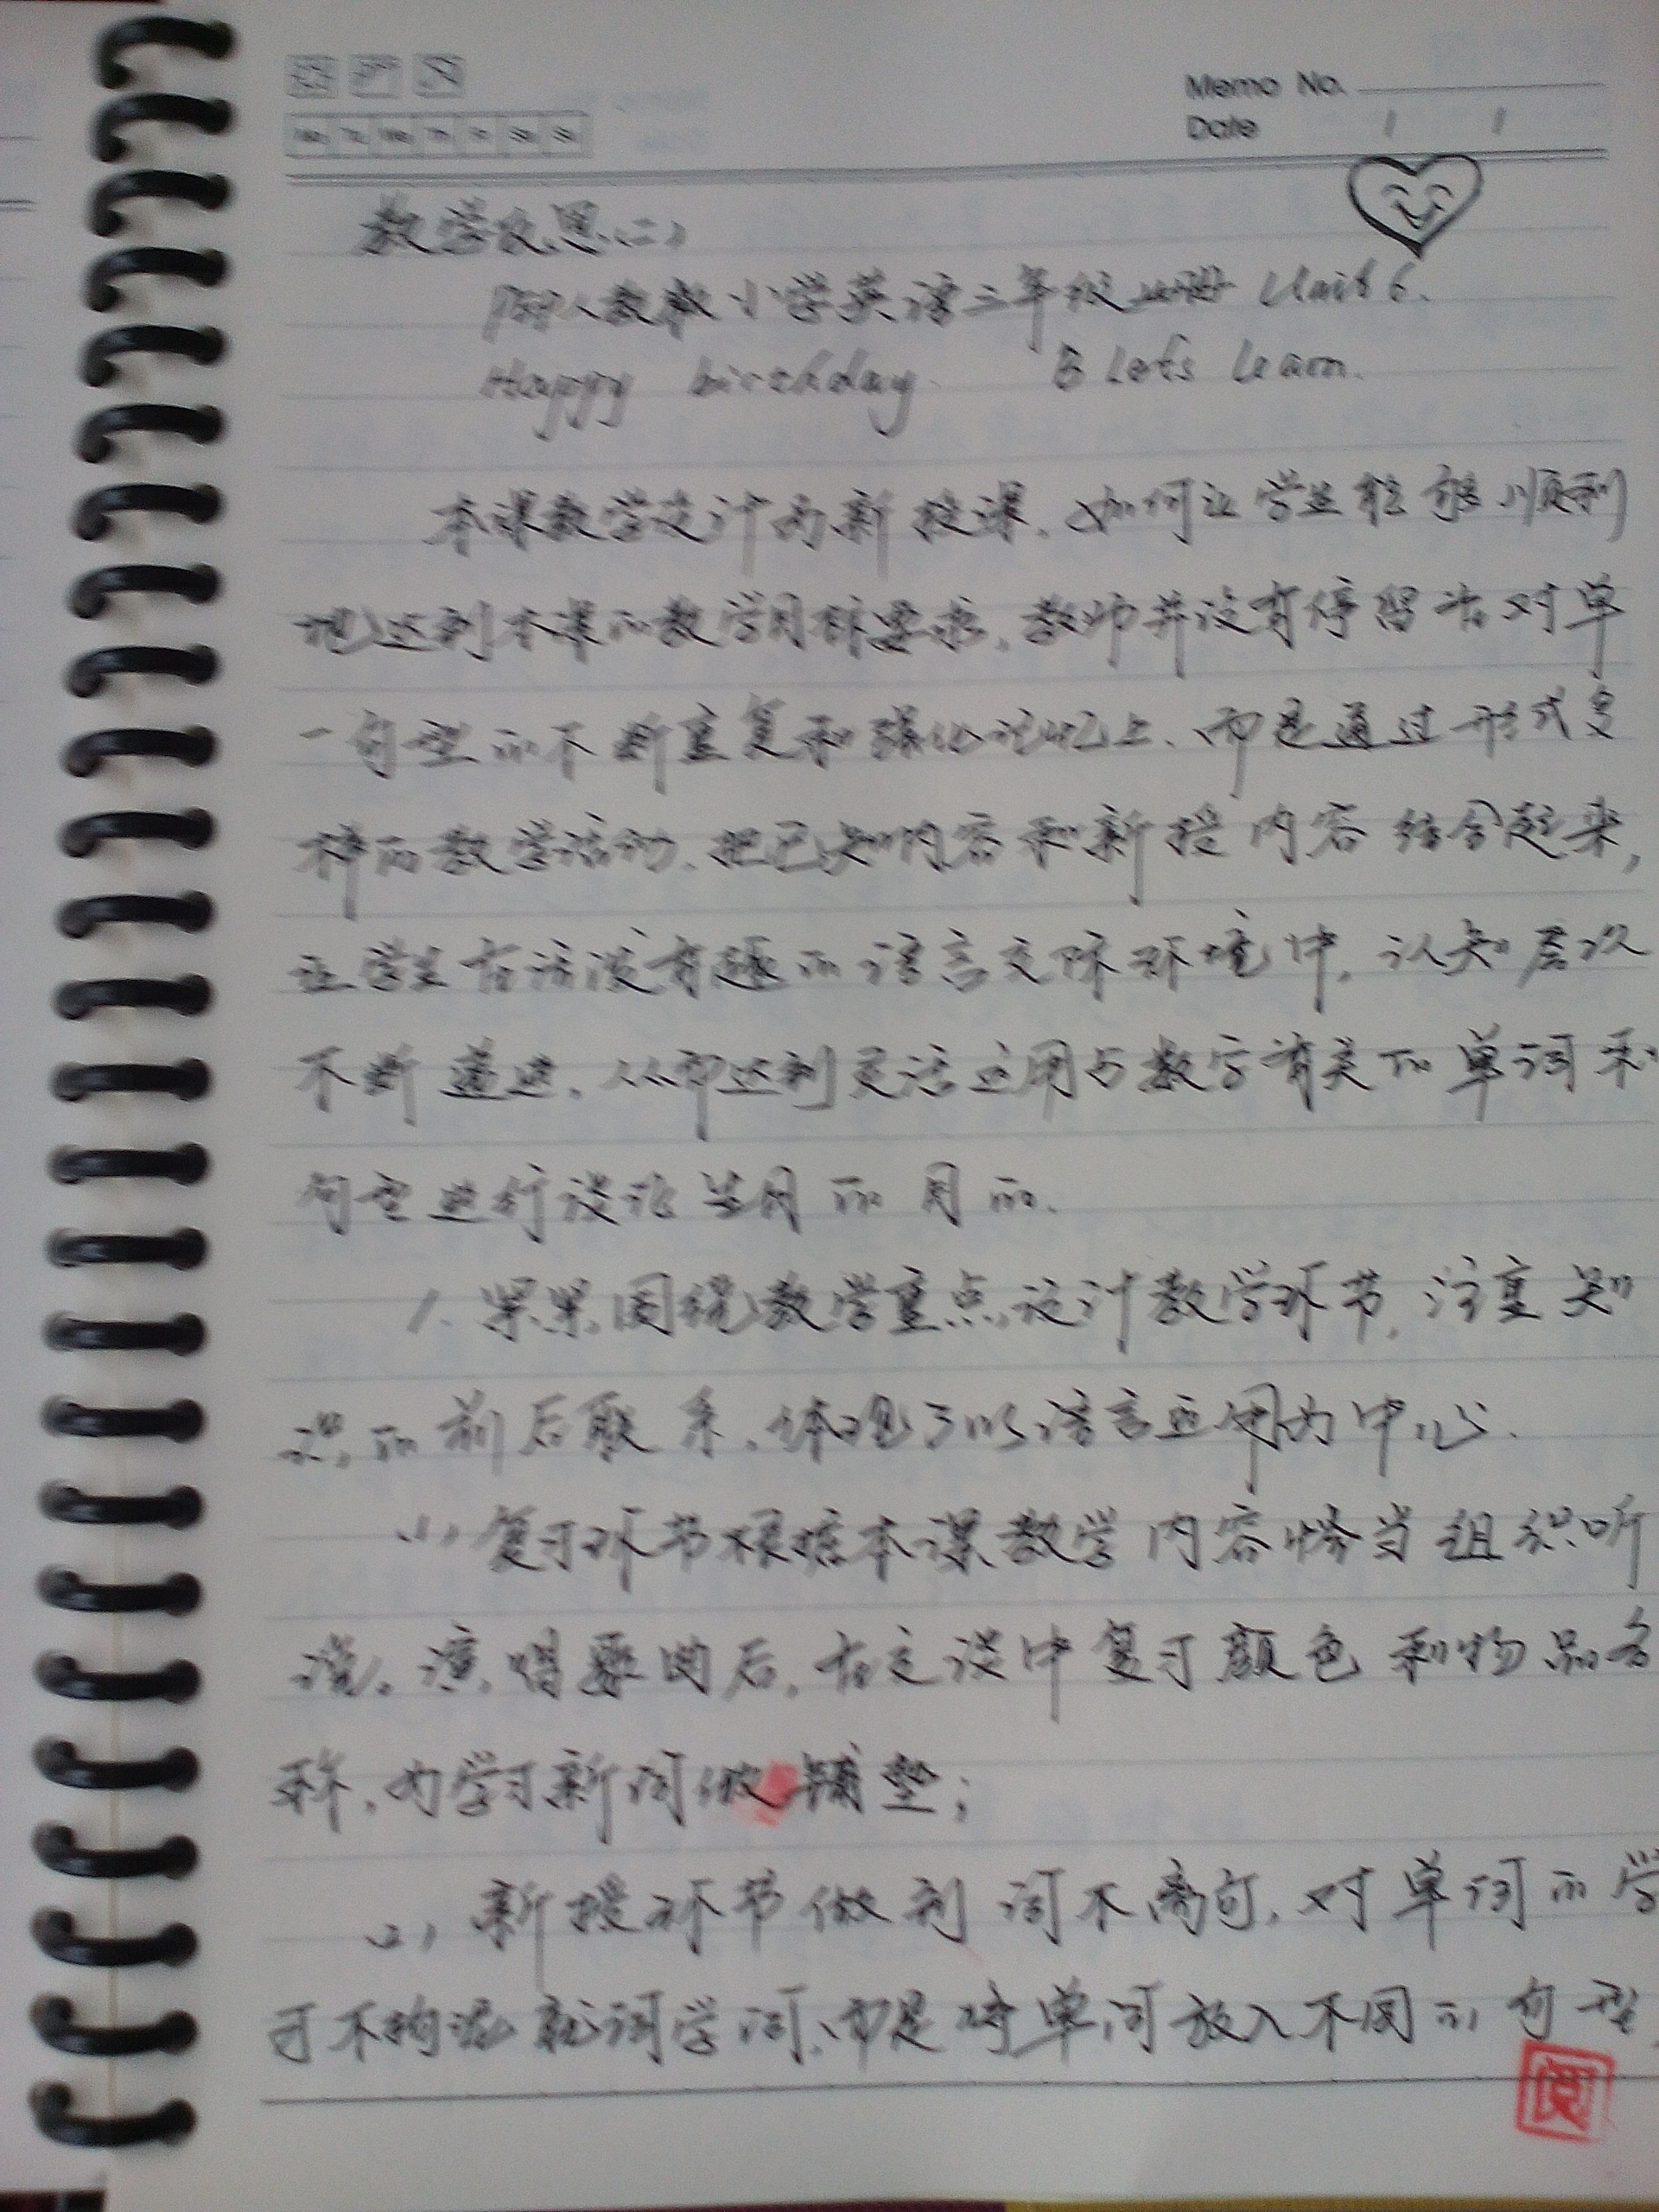 Memo No.
Date / /
Mo Tu We Th Fr Sa Su
教学反思(二)
人教版小学英语三年级上册 Unit 6.
Happy birthday. B Let's learn.
本课教学设计为新授课,如何让学生能够顺利
地达到本课的教学目标要求,教师并没有停留在对单
一句型的不断重复和强化记忆上,而是通过形式多
样的教学活动,把已知内容和新授内容结合起来,
让学生在活泼有趣的语言交际环境中,认知层次
不断递进,从而达到灵活运用与数字有关的单词和
句型进行谈论 的目的.
1. 紧紧围绕教学重点设计教学环节,注重知
识的前后联系,体现了以语言运用为中心.
(1) 复习环节根据本课教学内容恰当组织听
说、演唱歌曲后,在交谈中复习颜色和物品名
称,为学习新词做铺垫;
(2) 新授环节做到词不离句,对单词的学
习不拘泥就词学词,而是将单词放入不同的句型
阅